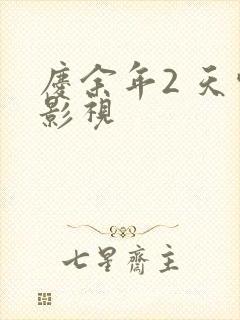 慶余年2 天
影視
七星齋主